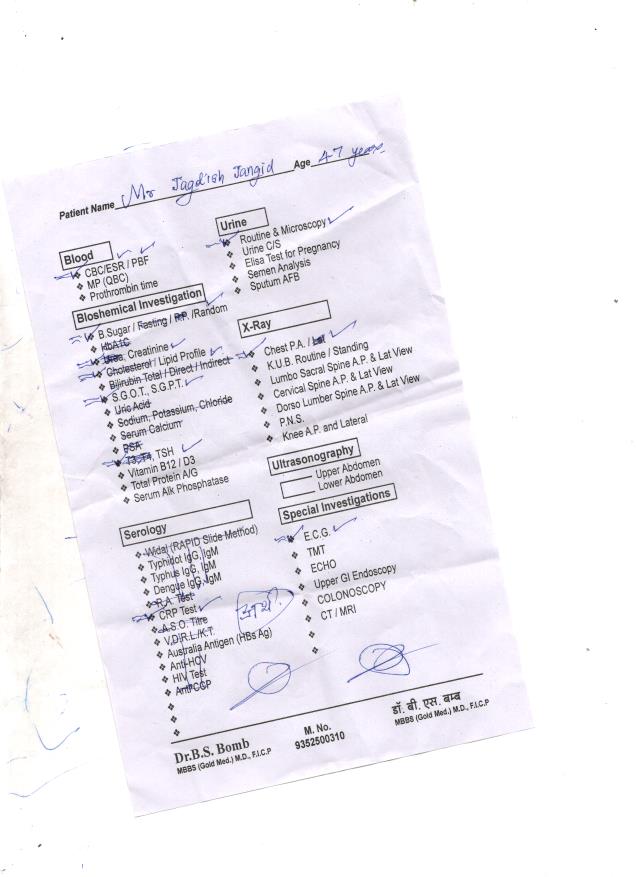 Patient Name Mr Jagdish Jangid Age 47 years
Blood
CBC/ESR / PBF
MP (QBC)
Prothrombin time
Bioshemical Investigation
B.Sugar / Fasting / P.P. /Random
HbA1C
Urea, Creatinine
Cholesterol / Lipid Profile
Bilirubin Total / Direct / Indirect
S.G.O.T., S.G.P.T.
Uric Acid
Sodium, Potassium, Chloride
Serum Calcium
PSA
T3, T4, TSH
Vitamin B12 / D3
Total Protein A/G
Serum Alk Phosphatase
Serology
Widal (RAPID Slide Method)
Typhidot IgG, IgM
Typhus IgG, IgM
Dengue IgG, IgM
R.A. Test
CRP Test
A.S.O. Titre
V.D.R.L./K.T.
Australia Antigen (HBs Ag)
Anti-HCV
HIV Test
Anti CCP
Urine
Routine & Microscopy
Urine C/S
Elisa Test for Pregnancy
Semen Analysis
Sputum AFB
X-Ray
Chest P.A. / Lat
K.U.B. Routine / Standing
Lumbo Sacral Spine A.P. & Lat View
Cervical Spine A.P. & Lat View
Dorso Lumber Spine A.P. & Lat View
P.N.S.
Knee A.P. and Lateral
Ultrasonography
Upper Abdomen
Lower Abdomen
Special Investigations
E.C.G.
TMT
ECHO
Upper GI Endoscopy
COLONOSCOPY
CT / MRI
Dr.B.S. Bomb
MBBS (Gold Med.) M.D., F.I.C.P
M. No.
9352500310
डॉ. बी. एस. बम्ब
MBBS (Gold Med.) M.D., F.I.C.P